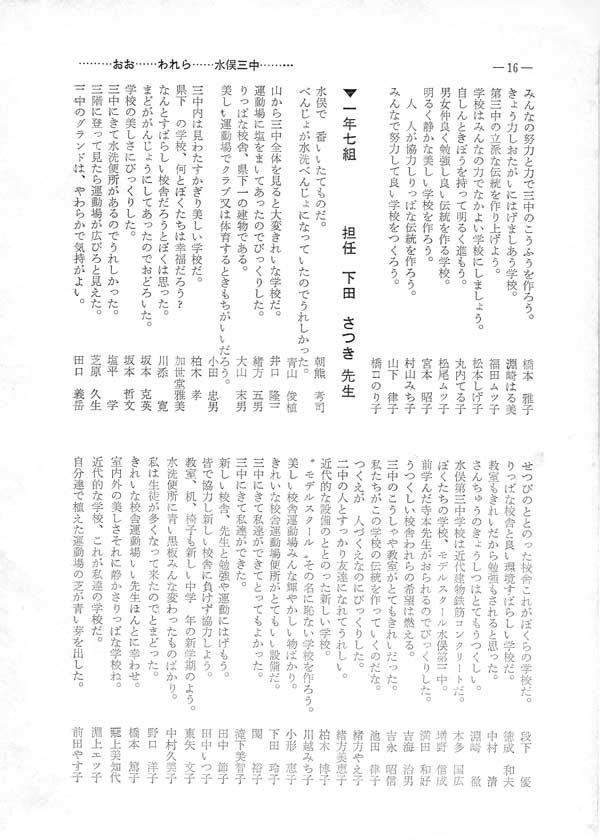 ………おお……われら……水俣三中………
―16―
みんなの努力と力で三中のこうふうを作ろう。　橋本　雅子
きょう力しおたがいにはげましあう学校。　淵崎はる美
第三中の立派な伝統を作り上げよう。　福田ムツ子
学校はみんなの力でなかよい学校にしましょう。　松本しげ子
自しんときぼうを持って明るく進もう。　丸内てる子
男女仲良く勉強し良い伝統を作る学校。　松尾ムツ子
明るく静かな美しい学校を作ろう。　宮本　昭子
人　人が協力しりっぱな伝統を作ろう。　村山みち子
みんなで努力して良い学校をつくろう。　山下　律子
橋口のり子
▼一年七組　担任　下田　さつき　先生
水俣で　番いいたてものだ。　朝熊　考司
べんじょが水洗べんじょになっていたのでうれしかった。　青山　俊植
山から三中全体を見ると大変きれいな学校だ。　井口　隆三
運動場に塩をまいてあったのでびっくりした。　緒方　五男
りっぱな校舎、県下一の建物である。　大山　末男
美しい運動場でクラブ又は体育するときもちがいいだろう。　小田　忠男
三中内は見わたすかぎり美しい学校だ。　柏木　孝
県下　の学校、何とぼくたちは幸福だろう？　加世堂雅美
なんとすばらしい校舎だろうとぼくは思った。　川添　寛
まどががんじょうにしてあったのでおどろいた。　坂本　克英
学校の美しさにびっくりした。　坂本　哲文
三中にきて水洗便所があるのでうれしかった。　塩平　学
三階に登って見たら運動場が広びろと見えた。　芝原　久生
三中のグランドは、やわらかで気持がよい。　田口　義岳
せつびのととのった校舎これがぼくらの学校だ。　段下　優
りっぱな校舎と良い環境すばらしい学校だ。　徳成　和夫
教室もきれいだから勉強もされると思った。　中村　清
さんちゅうのきょうしつはとてもうつくしい。　淵崎　徹
水俣第三中学校は近代建物鉄筋コンクリートだ。　本多　国広
ぼくたちの学校、モデルスクール水俣第三中。　増野　信成
前学んだ寺本先生がおられるのでびっくりした。　満田　和好
うつくしい校舎われらの希望は燃える。　吉海　治男
三中のこうしゃや教室がとてもきれいだった。　吉永　昭信
私たちがこの学校の伝統を作っていくのだな。　池田　律子
つくえが　人づくえなのにびっくりした。　緒方やえ子
二中の人とすっかり友達になれてうれしい。　緒方美恵子
近代的な設備のととのった新しい学校。　柏木　博子
〝モデルスクール〟その名に恥じない学校を作ろう。　川越みち子
美しい校舎運動場みんな輝やかしい物ばかり。　小形　恵子
きれいな校舎運動場便所がとてもいい設備だ。　下田　玲子
三中にきて私達ができてとってもよかった。　関　裕子
三中にきて私達ができた。　滝下美智子
新しい校舎、先生と勉強や運動にはげもう。　田中　節子
皆で協力し新しい校舎に負けず協力しよう。　田中いつ子
教室、机、椅子も新しい中学　年の新学期のよう。　東矢　文子
水洗便所に青い黒板みんな変わったものばかり。　中村久美子
私は生徒が多くなって来たのでとまどった。　野口　洋子
きれいな校舎運動場いい先生ほんとに幸わせ。　橋本　篤子
室内外の美しさそれに静かさりっぱな学校ね。　上美知代
近代的な学校、これが私達の学校だ。　淵上エツ子
自分達で植えた運動場の芝が青い芽を出した。　前田やす子